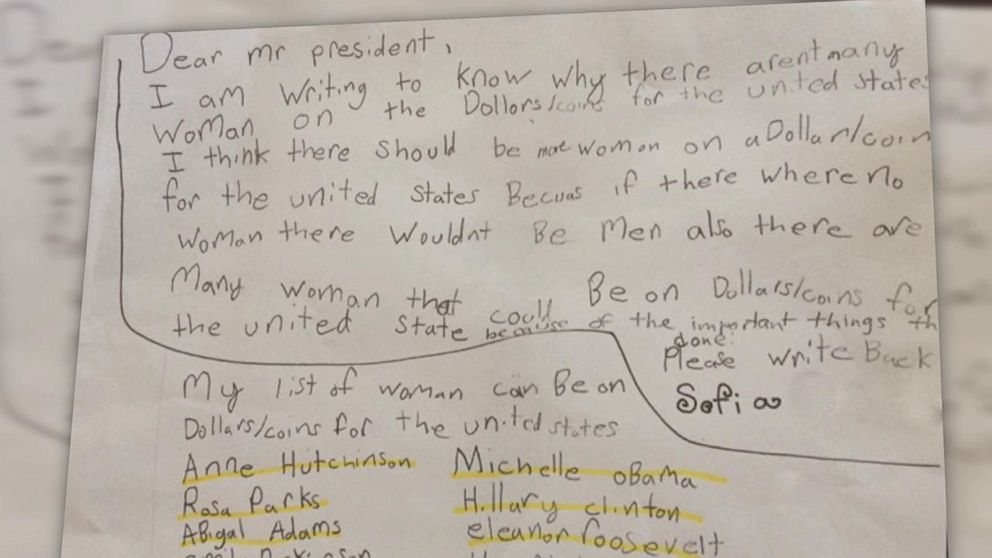 Dear mr president,
I am writing to know why there arent many
woman on the Dollors/coins for the united states
I think there should be more women on a Dollar/coin
for the united states Becuas if there where no
woman there wouldnt Be Men also there are
Many woman that could Be on Dollars/coins for
the united state because of the important things th
done.
Please write Back
Sofia
My list of woman can Be on
Dollars/coins for the united states
Anne Hutchinson Michelle oBama
Rosa Parks Hillary clinton
ABigal Adams eleanor roosevelt